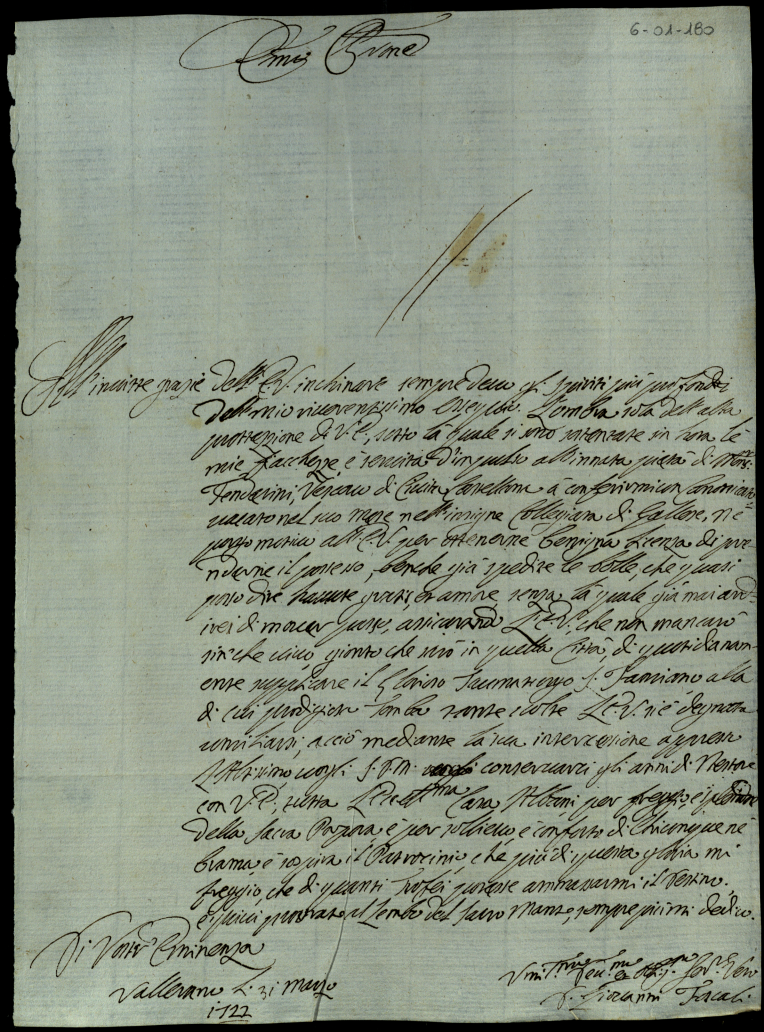 6-01-180
Em.mo
All'invitte grazie dell'E.V. inchinare sempre devo gl'
dell mio riverentissimo L'ombra sola dell'alta
protezzione di V.E., sotto la quale si sono in hora le
mie fiacchezze, è d'impulso all'innata pietà di Mons.
Tenderini, Vescovo di Civita Castellana à conferirmi un Canonicato
vacato nel suo mese nell'insigne Collegiata di Gallese, ne
porgo all'E.V. per ottenerne benigna licenza di pre-
nderne il possesso, benche già spedite le bolle, che quasi
posso dire gratis, et amore, senza la quale già mai ard-
irei di mover passo, assicurando L'E.V., che non mancarò
sin che vivo, gionto che sarò in quella Città, di quotidianam-
ente supplicare il Glorioso Taumaturgo S. Famiano alla
di cui prodigiosa Tomba tante volte L'E.V. si è degnata
umiliarsi, acciò mediante la sua intercessione appresso
l'Altissimo vogli S.D.M. conservarci gli anni di Nestore
con V.E. tutta L'Ecc.ma Casa Albani per freggio, e splendore
della Sacra Porpora e per sollievo, e conforto di chiunque ne
brama, e sospira il Patrocinio, che più di questa gloria mi
freggio, che di quanti Trofei potesse ammassarmi il destino.
e quivi prostrato al Lembo del Sacro Manto, sempre più mi dedico.
Di Vostr' Eminenza
Vallerano Li 31 Marzo
1722
Um.mo
Giovanni